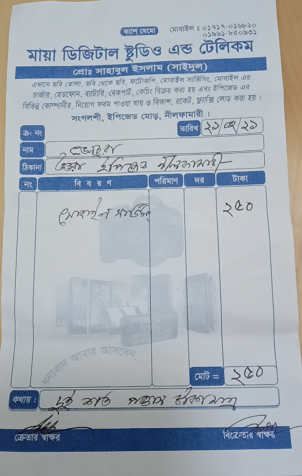 ক্যাশ মেমো
মোবাইল : ০১৭১৭-০১৬৮২০
মায়া ডিজিটাল ষ্টুডিও এন্ড টেলিকম
প্রোঃ সাহাবুল ইসলাম (সাইদুল)
এখানে ছবি তোলা, ছবি থেকে ছবি, ফটোকপি, মোবাইল সার্ভিসিং, মোবাইল এর
চার্জার, হেডফোন, ব্যাটারি, বেকপার্ট, কেচিং বিক্রয় করা হয় এবং ইপিজেড এর
বিভিন্ন কোম্পানীর, নিয়োগ ফরম পাওয়া যায় ও বিকাশ, রকেট, ফ্ল্যাক্সি লোড করা হয়।
সংগলশী, ইপিজেড মোড়, নীলফামারী।
ক্র: নং
তারিখ ২১/০২/২১
নাম
ঠিকানা উত্তরা ইপিজেড নীলফামারী
নং বিবরণ পরিমাণ দর টাকা
মোবাইল সার্ভিস ২৫০
ধন্যবাদ আবার আসবেন...
মোট = ২৫০
কথায় : দুই শত পঞ্চাশ টাকা মাত্র
ক্রেতার স্বাক্ষর বিক্রেতার স্বাক্ষর